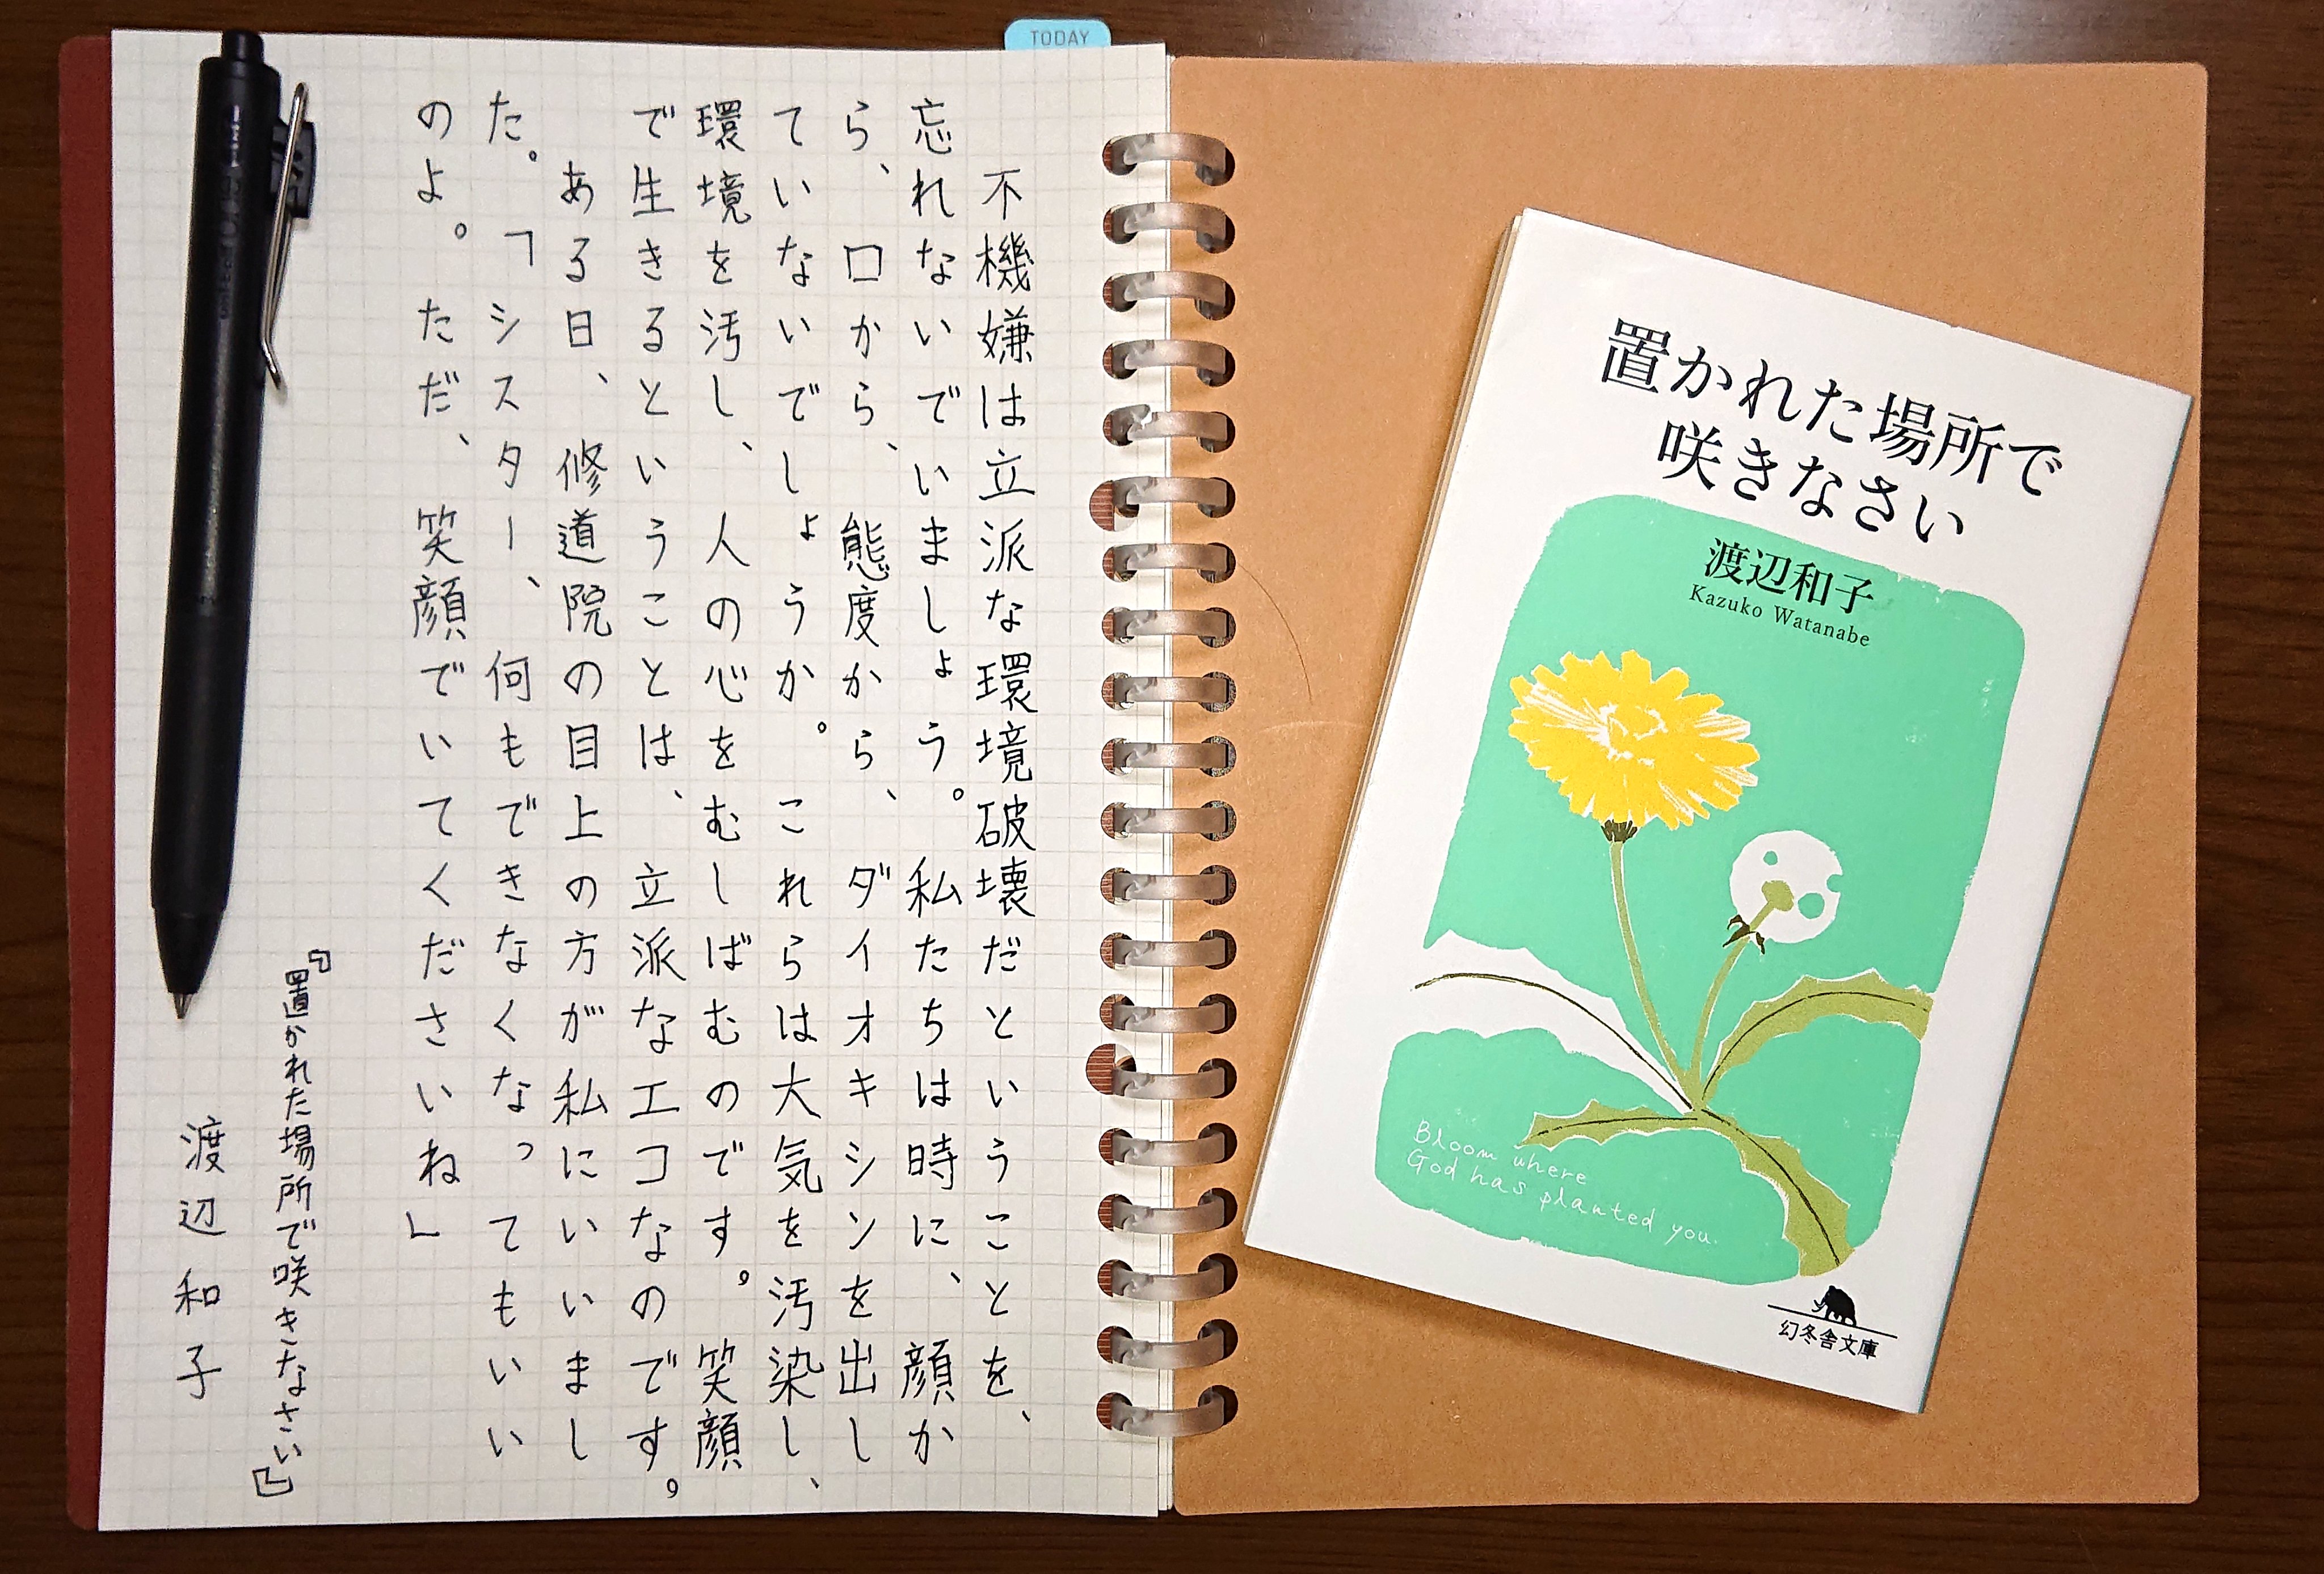 TODAY
不機嫌は立派な環境破壊だということを、
忘れないでいましょう。私たちは時に、顔か
ら、口から、態度から、ダイオキシンを出し
ていないでしょうか。これらは大気を汚染し、
環境を汚し、人の心をむしばむのです。笑顔
で生きるということは、立派なエコなのです。
ある日、修道院の目上の方が私にいいまし
た。「シスター、何もできなくなってもいい
のよ。ただ、笑顔でいてくださいね」
『置かれた場所で咲きなさい』
渡辺和子
置かれた場所で
咲きなさい
渡辺和子
Kazuko Watanabe
Bloom where
God has planted you.
幻冬舎文庫